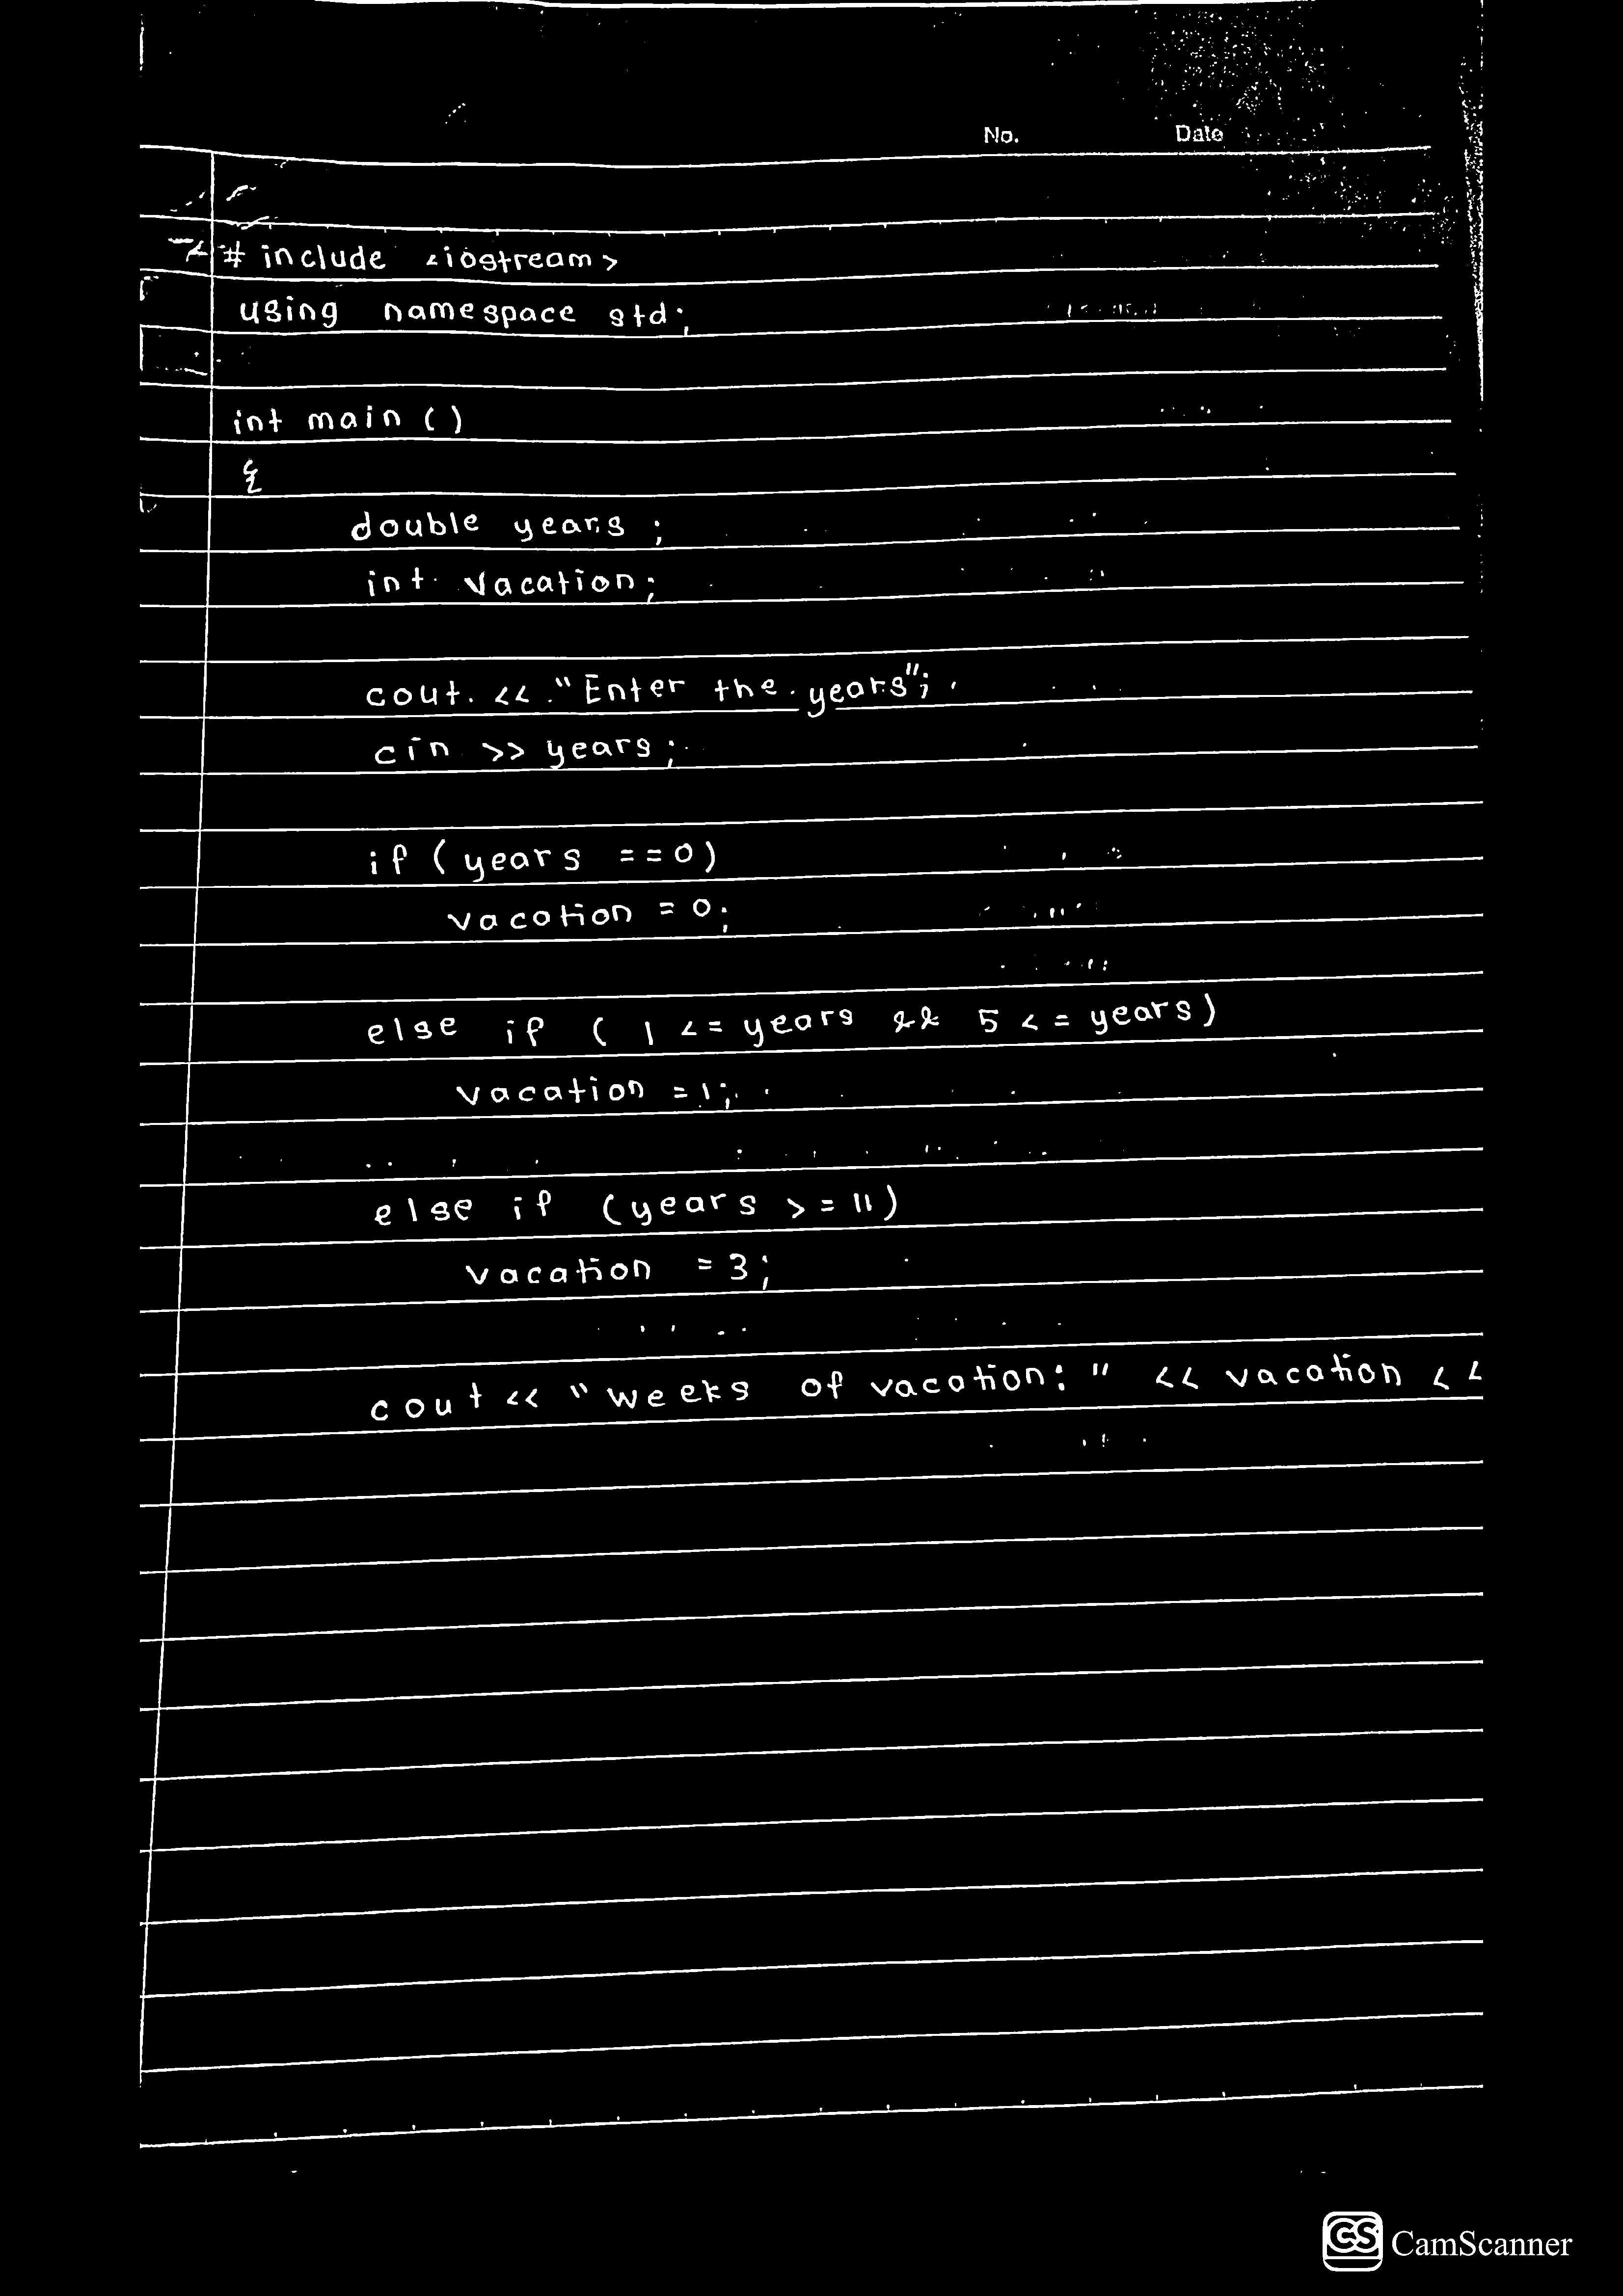 No. Date
# include <iostream>
using namespace std;
int main ()
{
double years ;
int vacation;
cout << "Enter the years";
cin >> years ;
if ( years == 0)
vacation = 0;
else if ( 1 <= years && 5 <= years)
vacation = 1;
else if (years >= 11)
vacation = 3;
cout << "weeks of vacation: " << vacation <<
CS CamScanner